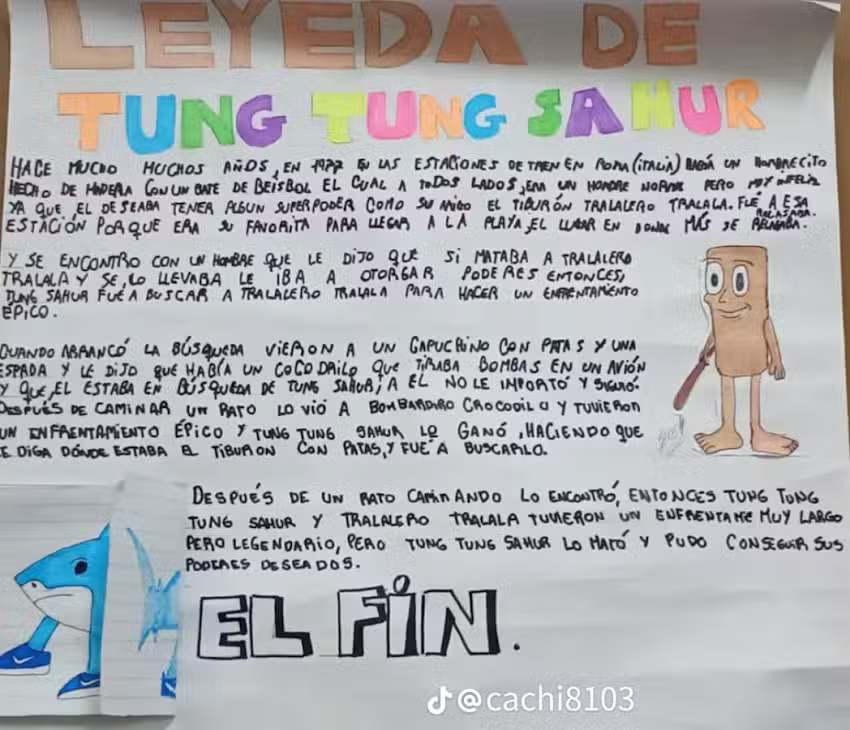 LEYEDA DE
TUNG TUNG SAHUR
HACE MUCHO MUCHOS AÑOS, EN 1977 EN LAS ESTACIONES DE TREN EN ROMA (ITALIA) HABÍA UN HOMBRECITO
HECHO DE MADERA CON UN BATE DE BEISBOL EL CUAL A TODOS LADOS, ERA UN HOMBRE NORMAL PERO MUY INFELIZ
YA QUE, EL DESEABA TENER ALGUN SUPERPODER COMO SU AMIGO EL TIBURÓN TRALALERO TRALALA. FUÉ A ESA
ESTACIÓN PORQUE ERA SU FAVORITA PARA LLEGAR A LA PLAYA, EL LUGAR EN DONDE MÁS SE RELAJABA.
Y SE ENCONTRO CON UN HOMBRE QUE LE DIJO QUE SI MATABA A TRALALERO
TRALALA Y SE LO LLEVABA LE IBA A OTORGAR PODERES ENTONCES,
TUNG SAHUR FUÉ A BUSCAR A TRALALERO TRALALA PARA HACER UN ENFRENTAMIENTO
ÉPICO.
CUANDO ARRANCÓ LA BÚSQUEDA VIERON A UN CAPUCHINO CON PATAS Y UNA
ESPADA Y LE DIJO QUE HABÍA UN COCODRILO QUE TIRABA BOMBAS EN UN AVIÓN
Y QUE, EL ESTABA EN BÚSQUEDA DE TUNG SAHUR, A EL NO LE IMPORTÓ Y SIGUIÓ.
DESPUÉS DE CAMINAR UN RATO LO VIÓ A BOMBARDIRO CROCODILO Y TUVIERON
UN ENFRENTAMIENTO ÉPICO Y TUNG TUNG SAHUR LO GANÓ, HACIENDO QUE
LE DIGA DÓNDE ESTABA EL TIBURON CON PATAS, Y FUE A BUSCARLO.
DESPUÉS DE UN RATO CAMINANDO LO ENCONTRÓ, ENTONCES TUNG TUNG
TUNG SAHUR Y TRALALERO TRALALA TUVIERON UN ENFRENTAME MUY LARGO
PERO LEGENDARIO, PERO TUNG TUNG SAHUR LO MATÓ Y PUDO CONSEGUIR SUS
PODERES DESEADOS.
EL FIN.
@cachi8103